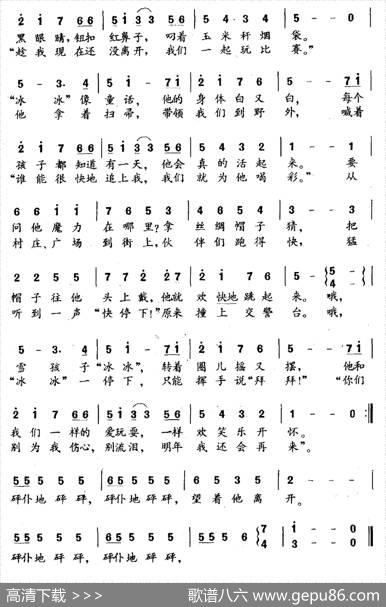 2̇ i 7 6 6 | 5 i 3 3 5 6 | 5 4 3 4 | 5 - - 0 |
黑眼睛,钮扣 红鼻子, 叼着 玉米秆烟 袋。
“趁我现在还 没离开, 我们 一起玩比 赛。”
5 - 3. 4 | 5 - i 7 i | 2̇ i 7 6 | 5 - - 7 i |
“冰 冰”像 童话, 他的 身体白又 白, 每个
他 拿着 扫帚, 带领 我们到野 外, 喊着
2̇ i 7 6 6 | 5 i 3 3 5 6 | 5 4 3 2 | 1 - - 0 |
孩子都知道 有一天, 他会 真的活起 来。 要
“谁能很快地 追上我, 我们 就为他喝 彩。” 从
6 6 i i | 7 6 5 3 | 4 3 2 4 | 5 - - 5 |
问他魔力 在哪里?拿 丝绸帽子 猜, 把
村庄、广场 到街上,伙 伴们跑得 快, 猛
2 2 5 5 | 7 7 2̇ 2̇ 7 | 2̇ i 7 6 | 5 - -
帽子往他 头上戴,他就 欢快地跳起 来。 哦,
听到一声 “快停下!”原来 撞上交警 台。 哦,
5 - 3. 4 | 5 - i 7 i | 2̇ i 7 6 | 5 - - 7 i |
雪 孩子 “冰冰”, 转着 圈儿摇又 摆, 他和
“冰 冰”一 停下, 只能 挥手说“拜 拜!” “你们
2̇ i 7 6 6 | 5 i 3 3 5 6 | 5 4 3 2 | 1 - - 0 :‖
我们一样的 爱玩耍, 一样 欢笑乐开 怀。
别为我伤心, 别流泪, 明年 我还会再 来”。
5 5 5 5 5 | 5 5 5 5 5 | 6 5 3 4 | 2 - - - |
砰仆地砰砰, 砰仆地砰砰, 望着他离 开。
5 5 5 5 5 | 5 5 5 5 5
砰仆地砰砰, 砰仆地砰砰,
高清下载 >>>
歌谱八六 www.gepu86.com